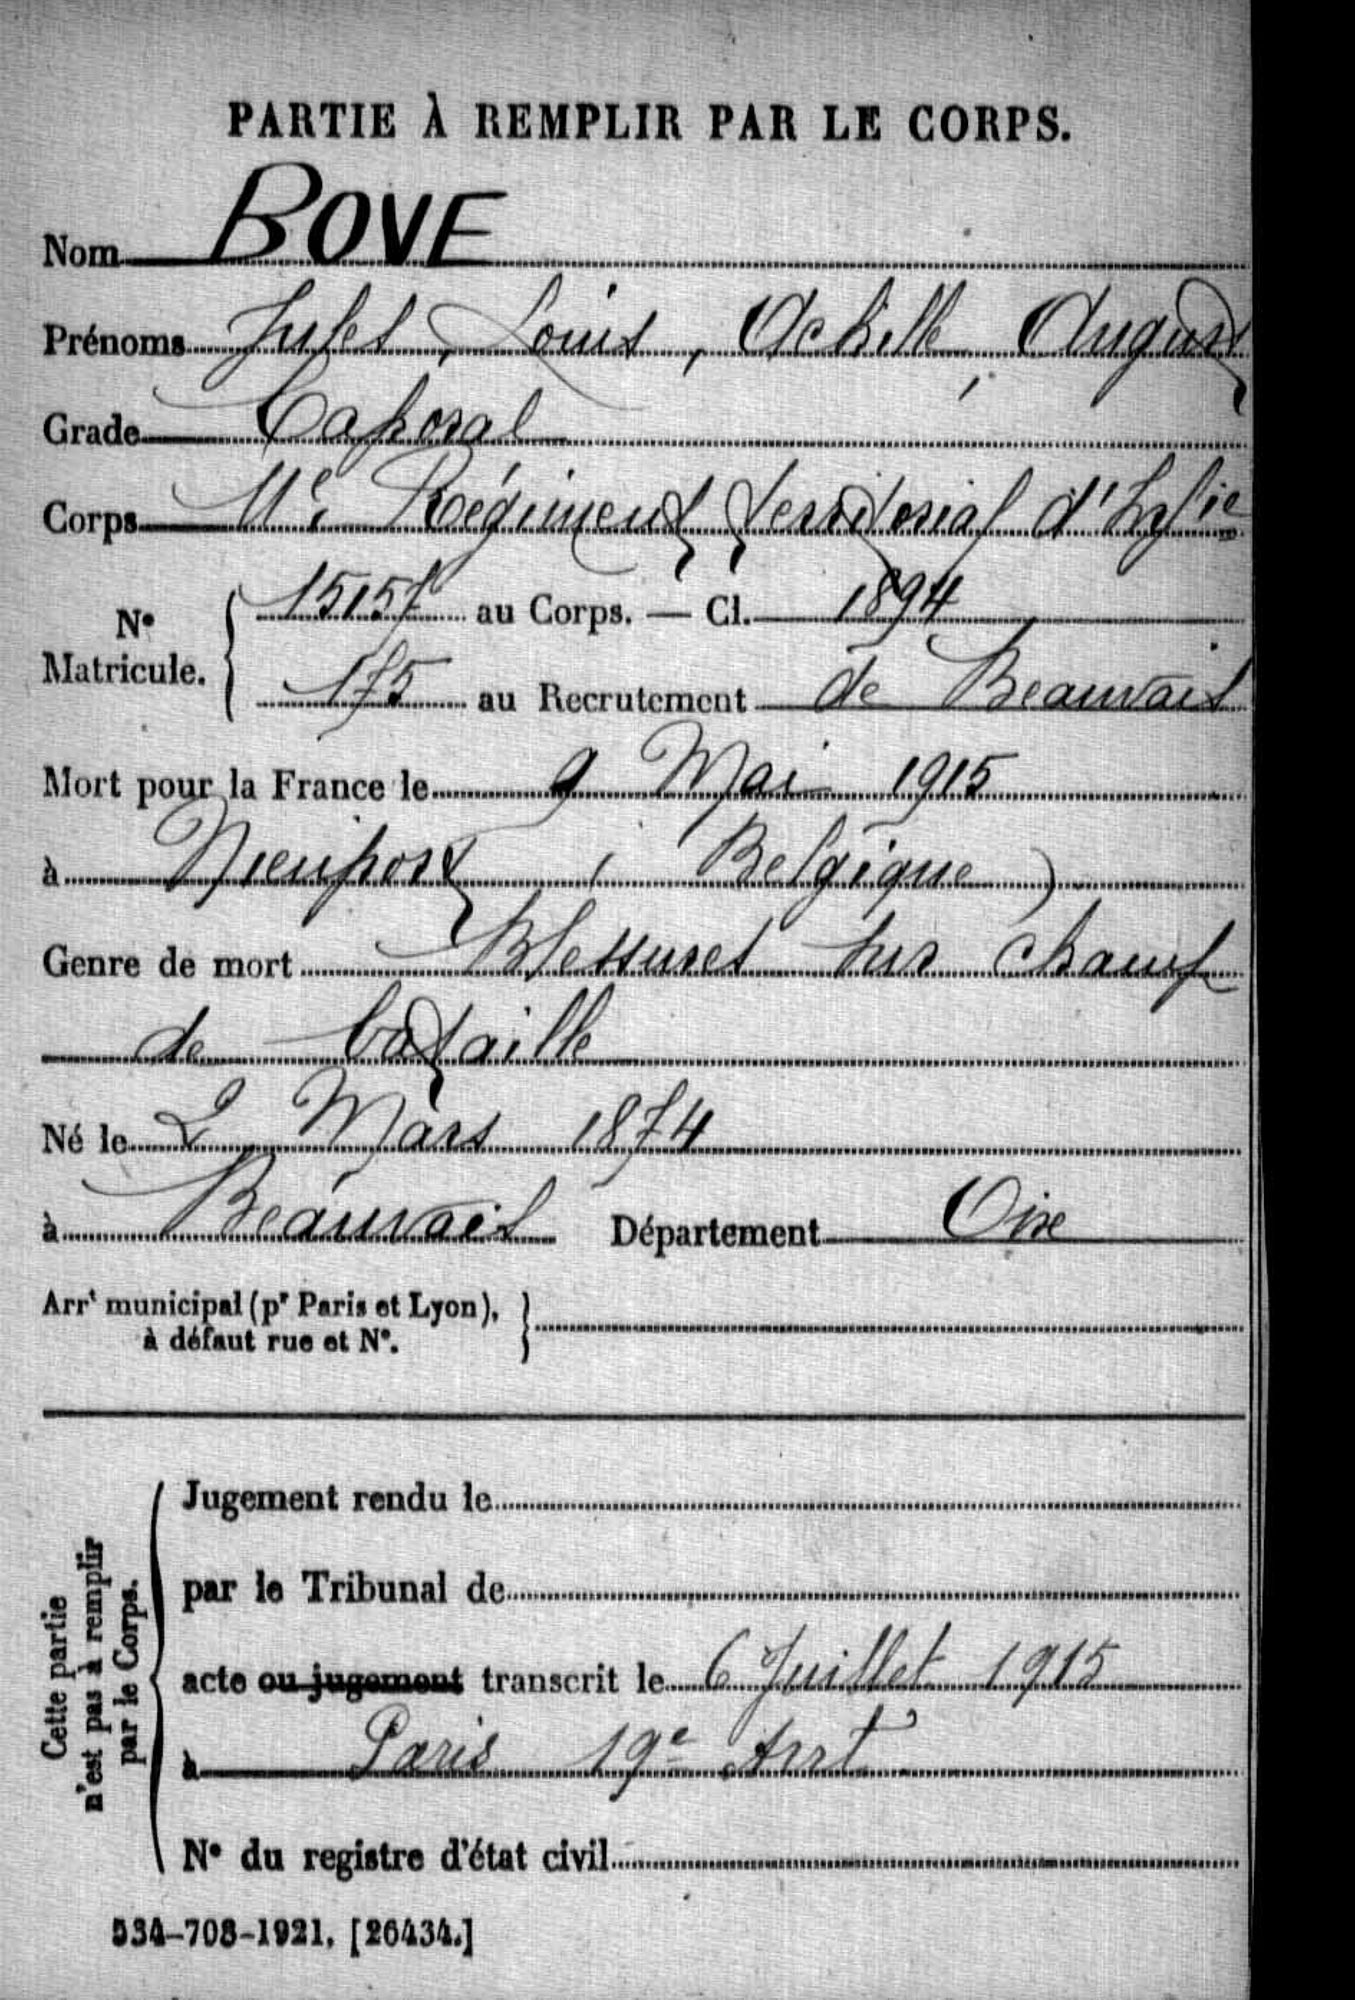 PARTIE À REMPLIR PAR LE CORPS.
Nom BOVE
Prénoms Jules, Louis, Achille, August
Grade Caporal
Corps 11e Régiment territorial d'Infie
No Matricule. 15157 au Corps. — Cl. 1894
175 au Recrutement de Beauvais
Mort pour la France le 9 Mai 1915
à Nieuport (Belgique)
Genre de mort Blessures sur champ
de bataille
Né le 2 Mars 1874
à Beauvais Département Oise
Arrt municipal (pr Paris et Lyon),
à défaut rue et No.
Cette partie
n'est pas à remplir
par le Corps.
Jugement rendu le
par le Tribunal de
acte ou jugement transcrit le 6 Juillet 1915
à Paris 19e Arrt
No du registre d'état civil
534-708-1921. [26434.]